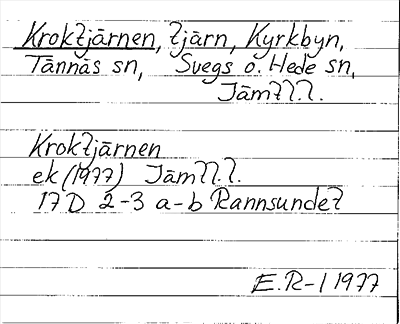 Kroktjärnen, tjärn, Kyrkbyn,
Tännäs sn, Svegs o. Hede sn,
Jämtl.l.
Kroktjärnen
ek (1977) Jämtl.l.
17D 2-3 a-b Rannsundet
E.R-l 1977